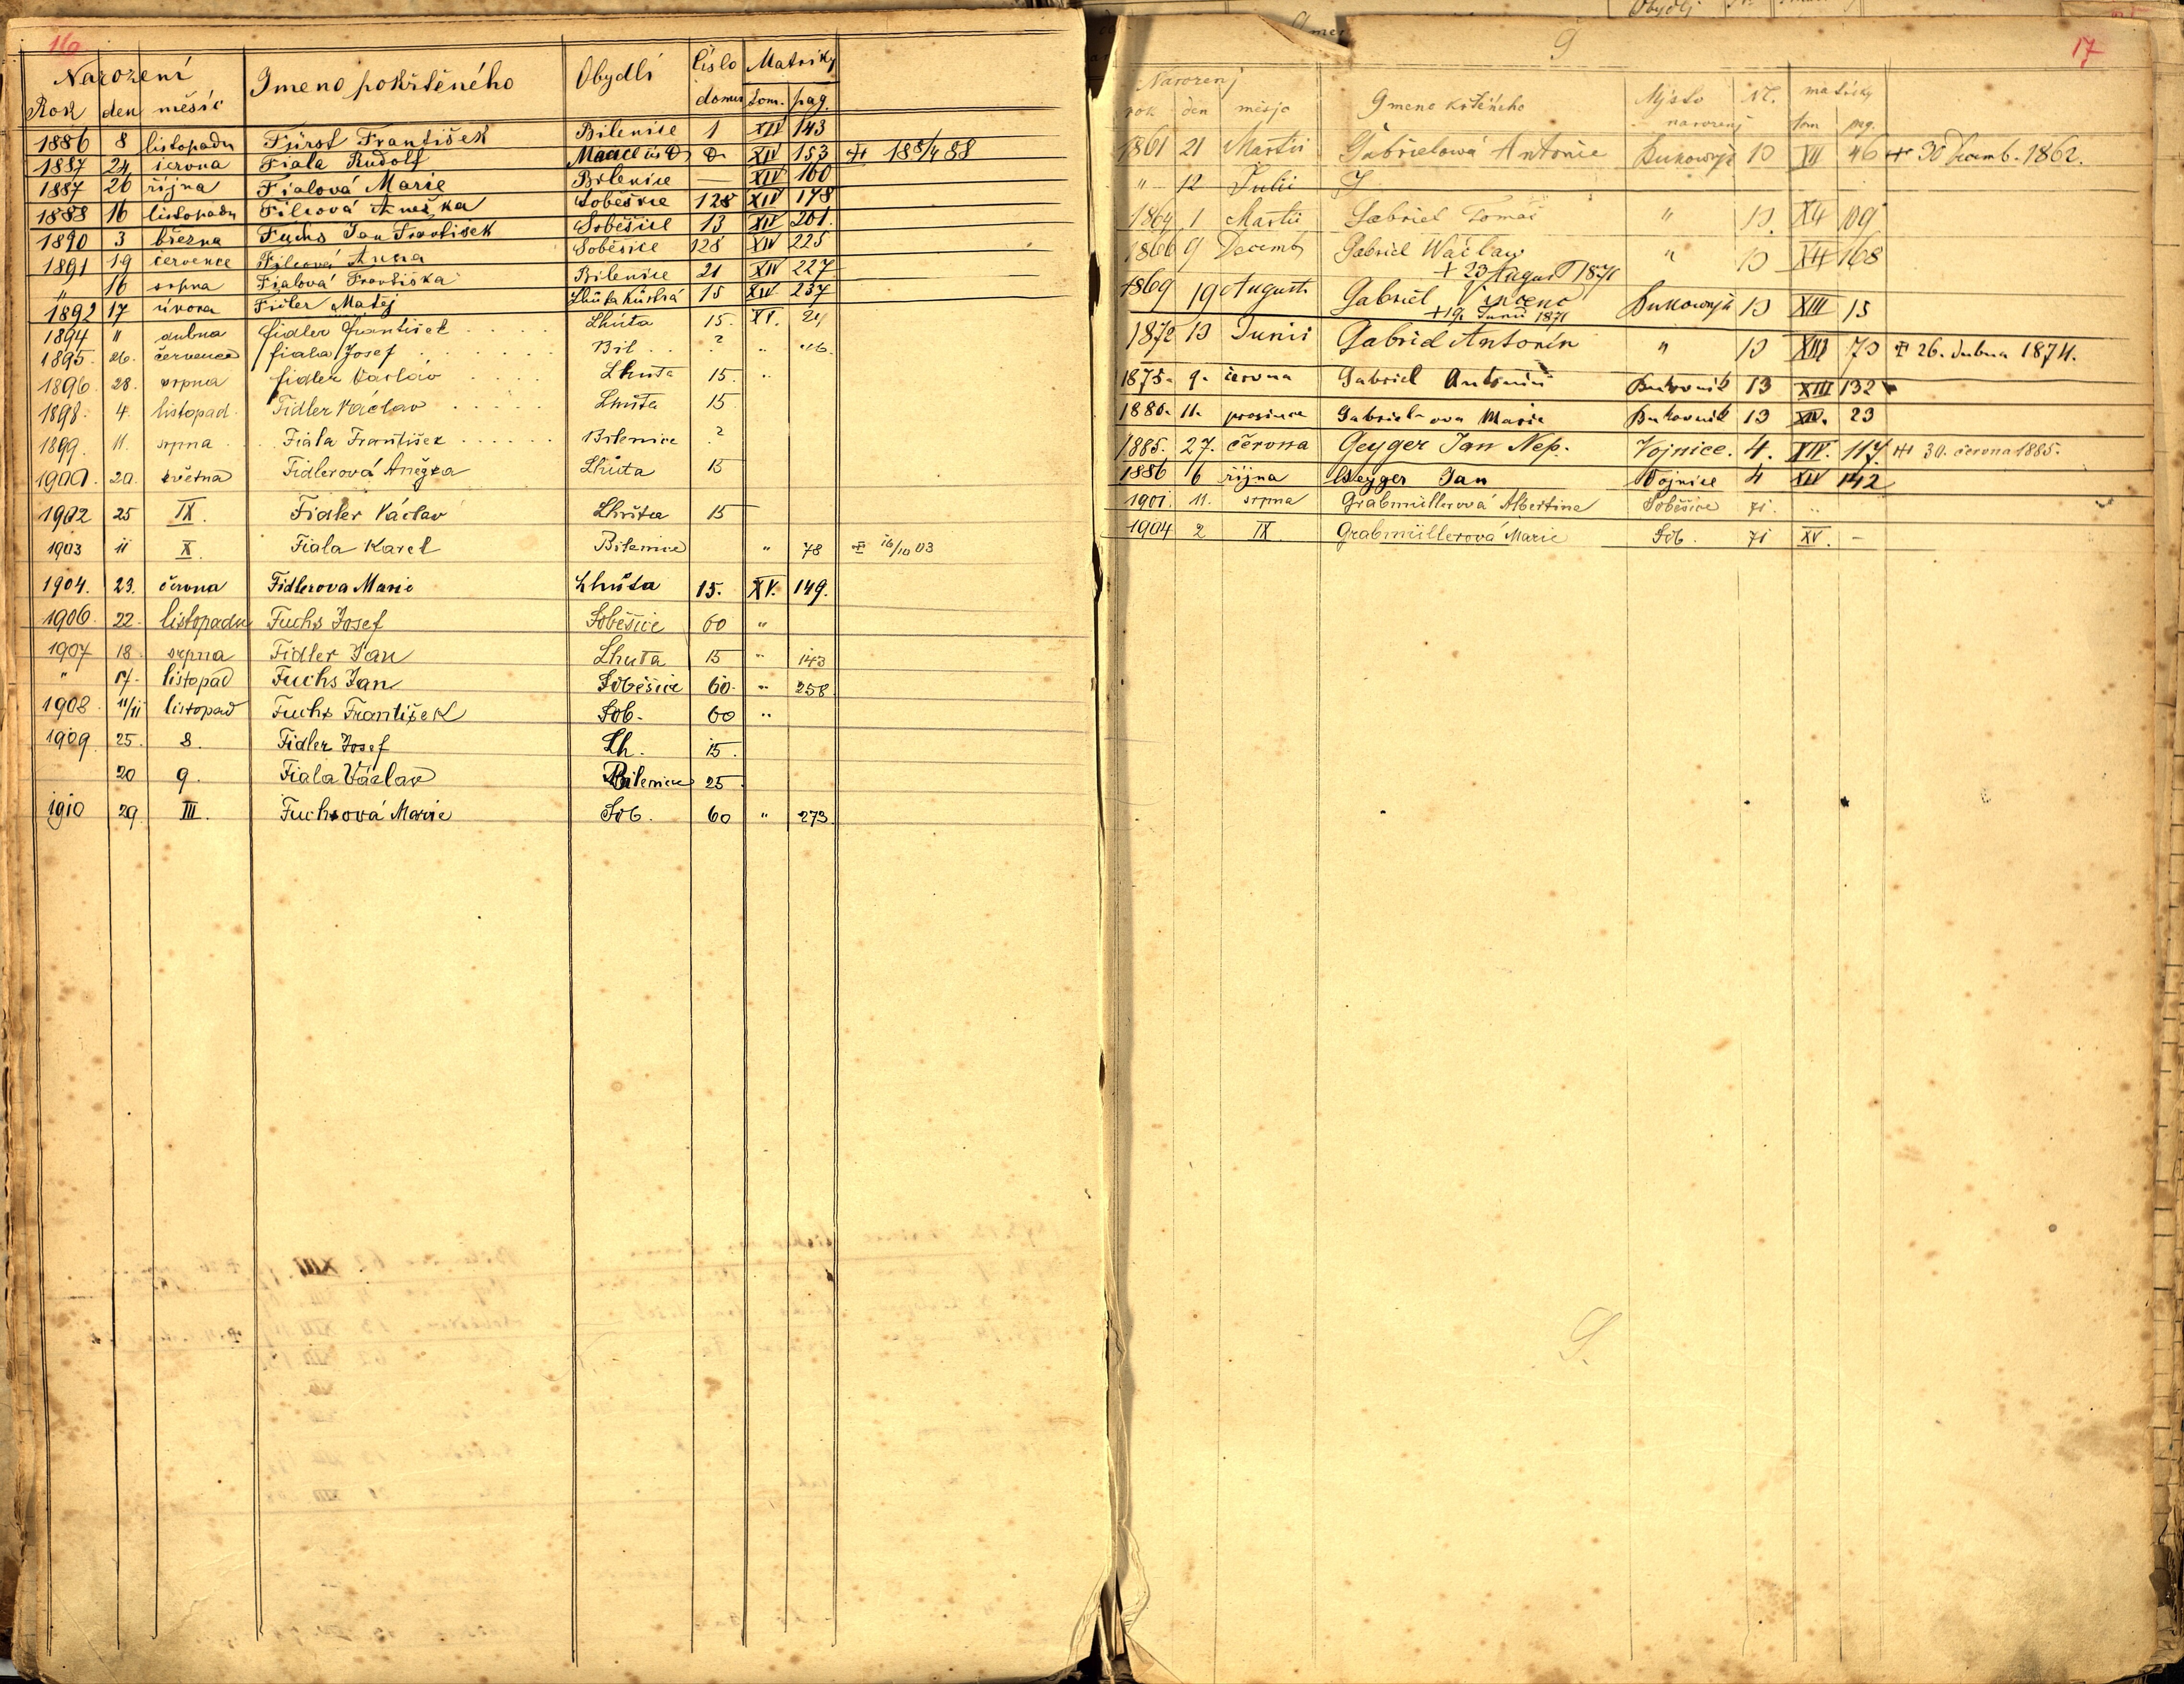 16
Narození Jmeno pokřtěného Obydlí číslo Matriky
Rok den měsíc domu tom. pag.
1886 8 listopadu Fürst František Bilenice 1 XIV 143
1887 24 června Fiala Rudolf XIV 153 188/4 88
1887 26 října Fialová Marie Bilenice — XIV 160
1888 16 listopadu Filcová Anežka Soběšice 128 XIV 178
1890 3 března Fuchs Jan František Soběšice 13 XIV 201.
1891 19 července Filcová Anna Soběšice 128 XIV 225
" 16 srpna Fialová Františka Bilenice 21 XIV 227
1892 17 února Fidler Matěj Lhůta 15 XIV 237
1894 " dubna Fidler František Lhůta 15. XV. 24
1895. 26. července Fiala Josef Bil . . ? "
1896. 28. srpna Fidler Václav Lhůta 15. "
1898. 4. listopad. Fidler Václav Lhůta 15
1899. 11. srpna Fiala František Bilenice ?
1900. 20. května Fidlerová Anežka Lhůta 15
1902 25 IX. Fidler Václav Lhůta 15
1903 11 X. Fiala Karel Bilenice " 78 16/10 03
1904. 23. června Fidlerova Marie Lhůta 15. XV. 149.
1906. 22. listopadu Fuchs Josef Soběšice 60 "
1907 18 srpna Fidler Jan Lhuta 15 " 143
" 17. listopad Fuchs Jan Soběšice 60. " 258
1908 11/11 listopad Fuchs František Sob. 60 "
1909. 25. 8. Fidler Josef Lh. 15.
20 9. Fiala Václav Bilenice 25
1910 29. III. Fuchsová Marie Sob. 60 " 273.
G 17
Narozenj Gmeno křtěného Mjsto Nr. matriky
rok den měsjc narozenj tom pag.
1861 21 Martii Gabrielowá Antonie Bukownjk 13 XII 46 30 Decemb. 1862.
" 12 Julii G
1864 1 Martii Gabriel Tomáš " 13. XII 109
1866 9 Decemb Gabriel Wáclaw " 13 XII 168
+ 23 August 1871
1869 19 Augusti Gabriel Vincenc Bukownjk 13 XIII 15
+ 19. Junii 1871
1872 13 Junii Gabriel Antonín " 13 XIII 73 26. dubna 1874.
1875. 9. června Gabriel Antonín Bukovník 13 XIII 132
1880. 11. prosince Gabriel-ova Marie Bukovník 13 XIV. 23
1885. 27. června Geyger Jan Nep. Vojnice. 4. XIV. 117. 30. června 1885.
1886 16 října Geyger Jan Vojnice 4 XIV 142
1901. 11. srpna Grabmüllerová Albertina Soběšice 71. "
1904 2 IX Grabmüllerová Marie Sob. 71 XV. —
G.